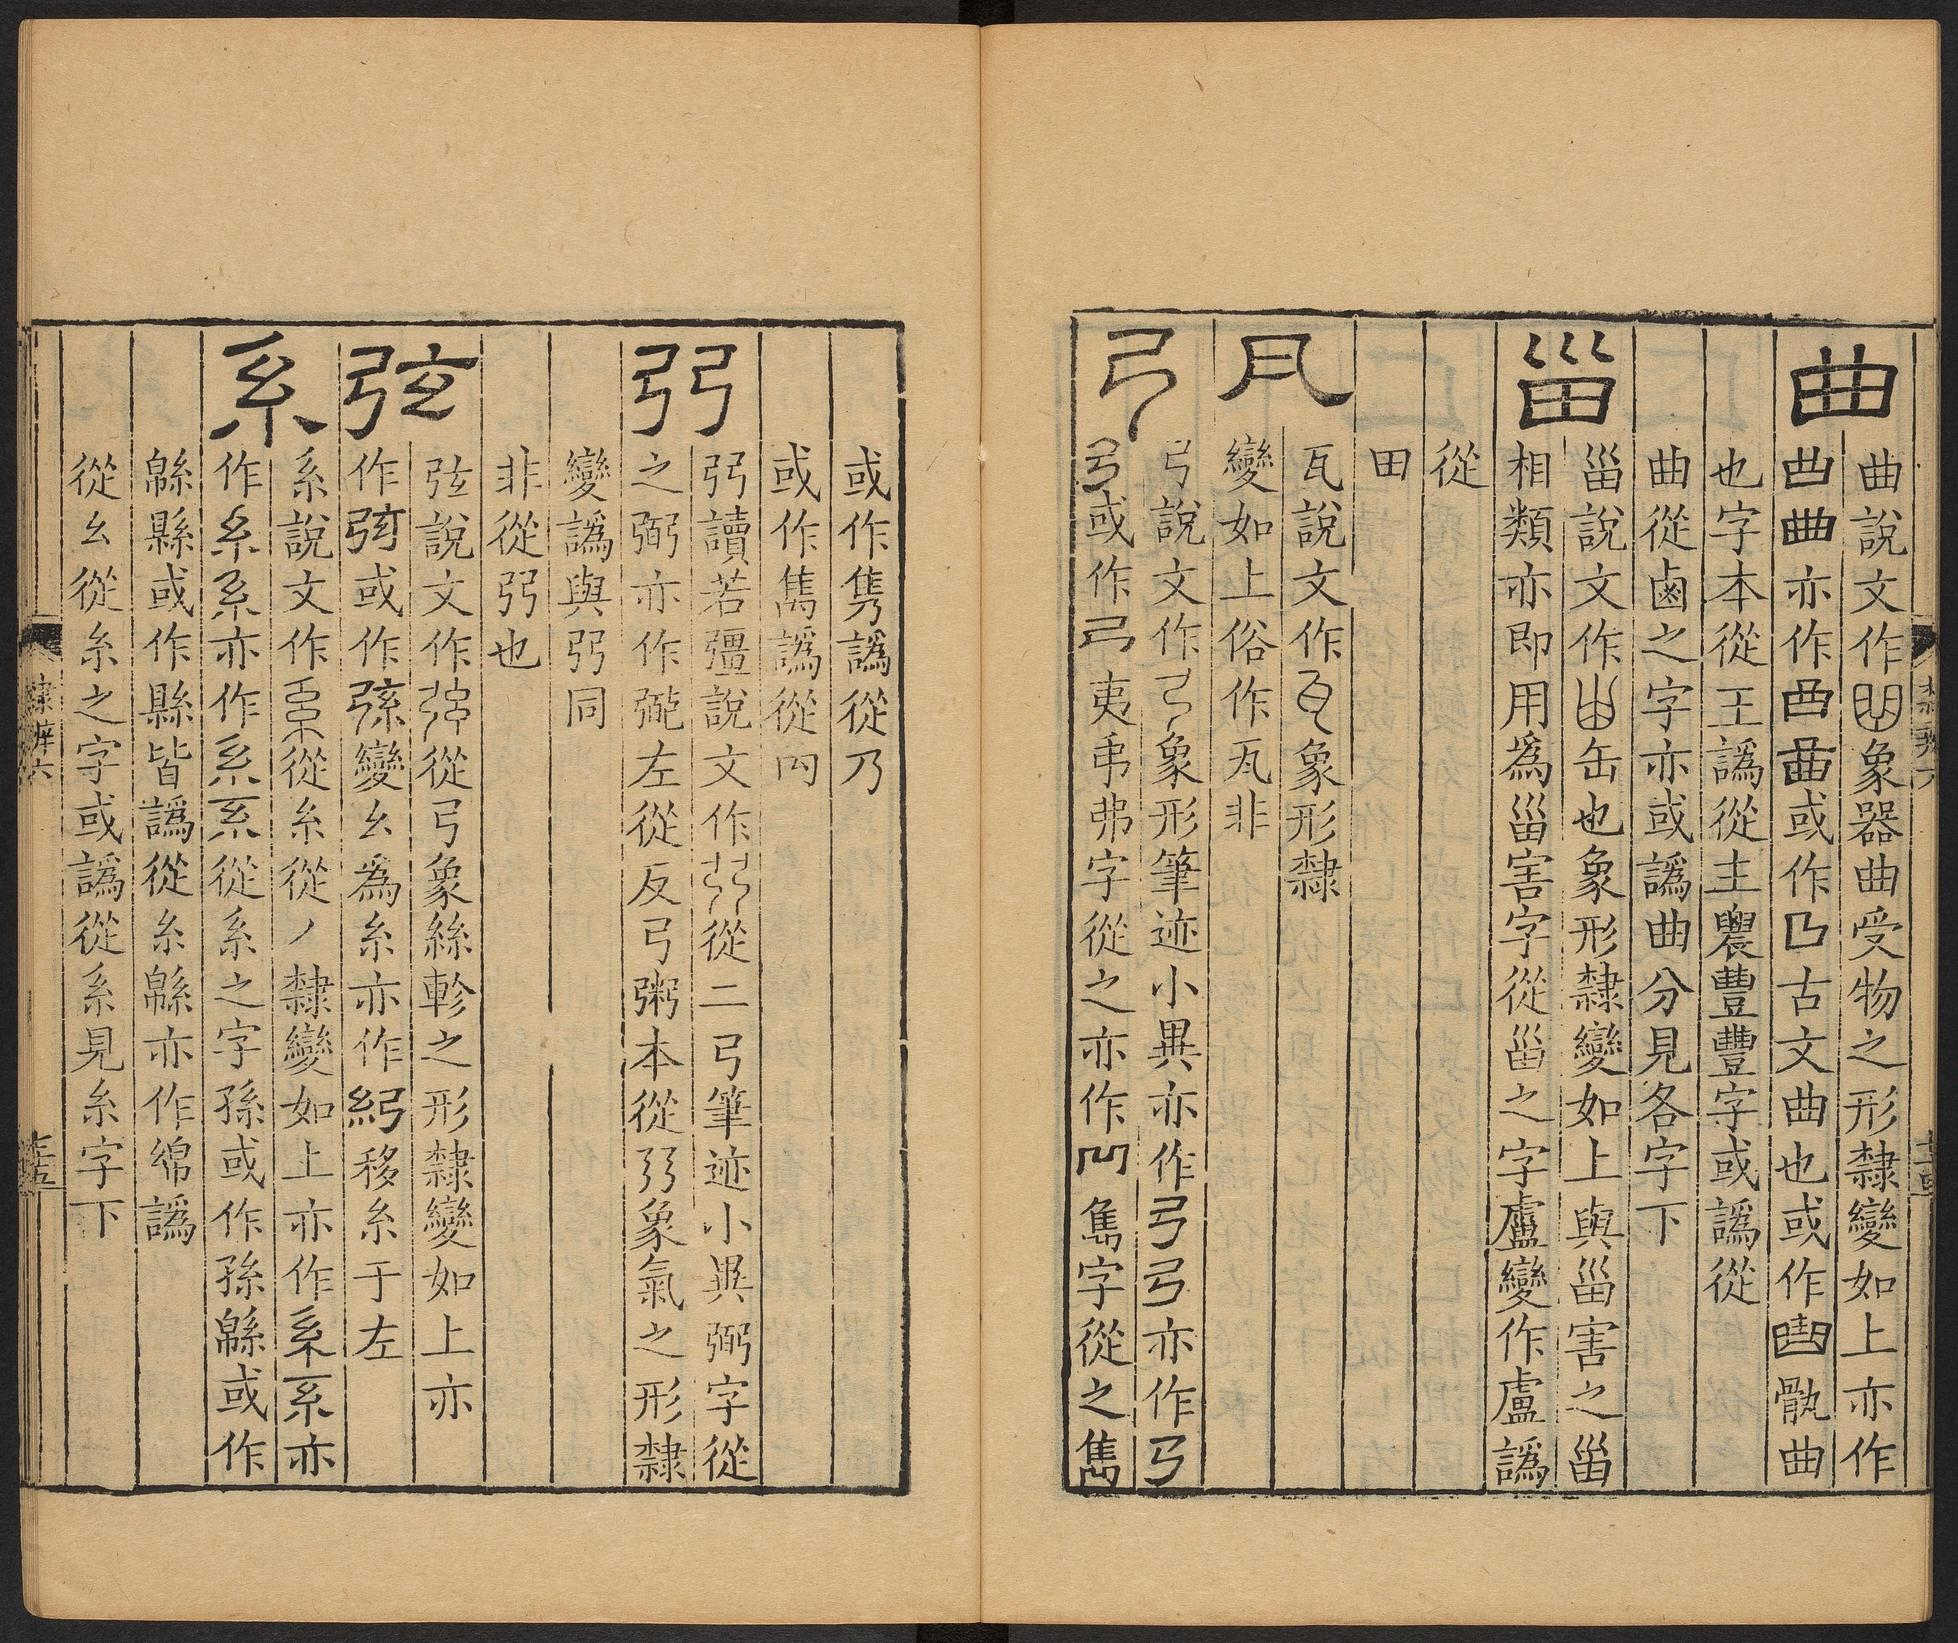 曲
曲說文作象器曲受物之形隸變如上亦作
亦作或作古文曲也或作骩曲
也字本從王譌從主農豐豐字或譌從
曲從鹵之字亦或譌曲分見各字下
甾
甾說文作缶也象形隸變如上與甾害之甾
相類亦即用爲甾害字從甾之字盧變作盧譌
從
田
瓦
瓦說文作象形隸
變如上俗作瓦非
弓
弓說文作象形筆迹小異亦作弓弓亦作
或作夷弔弗字從之亦作凹雋字從之雋
或作隽譌從乃
或作雋譌從
弜
弜讀若彊說文作從二弓筆迹小異弼字從
之弼亦作左從反弓粥本從象氣之形隸
變譌與弜同
非從弜也
弦
弦說文作從弓象絲軫之形隸變如上亦
作或作變幺爲糸亦作移糸于左
系
系說文作從糸從丿隸變如上亦作系系亦
作亦作從系之字孫或作孫緜或作
緜縣或作縣皆譌從糸緜亦作綿譌
從幺從糸之字或譌從系見糸字下